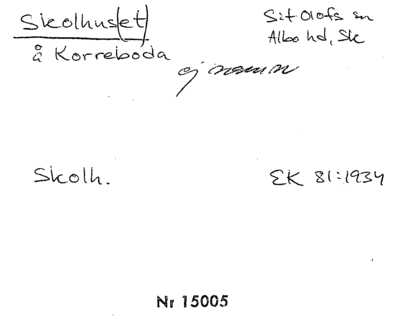 Skolhus(et)
å Korreboda
S:t Olofs sn
Albo hd, Sk
ej namn
Skolh.
EK 81:1934
Nr 15005